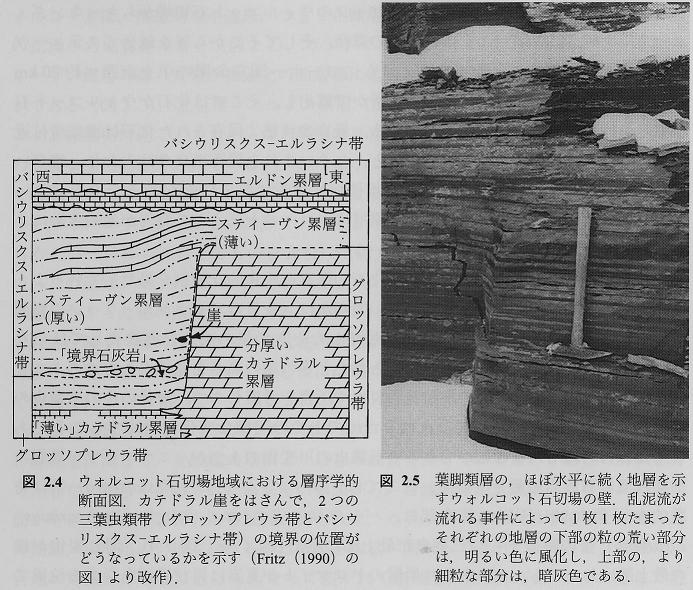 バシウリスクス-エルラシナ帯
バシウリスクス-エルラシナ帯
西
エルドン累層
東
スティーヴン累層
(薄い)
スティーヴン累層
(厚い)
崖
グロッソプレウラ帯
「境界石灰岩」
分厚い
カテドラル
累層
「薄い」カテドラル累層
グロッソプレウラ帯
図 2.4 ウォルコット石切場地域における層序学的
断面図.カテドラル崖をはさんで,2つの
三葉虫類帯(グロッソプレウラ帯とバシウ
リスクス-エルラシナ帯)の境界の位置が
どうなっているかを示す(Fritz(1990)の
図1より改作).
図 2.5 葉脚類層の,ほぼ水平に続く地層を示
すウォルコット石切場の壁.乱泥流が
流れる事件によって1枚1枚たまった
それぞれの地層の下部の粒の荒い部分
は,明るい色に風化し,上部の,より
細粒な部分は,暗灰色である.